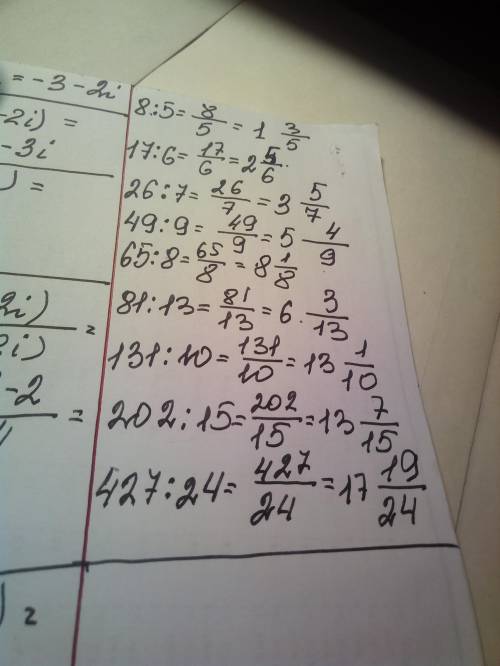 = -3 - 2i
-2i) =
-3i
) =
2i)
2i) =
-2
=
) =
8:5 = 8/5 = 1 3/5
17:6 = 17/6 = 2 5/6
26:7 = 26/7 = 3 5/7
49:9 = 49/9 = 5 4/9
65:8 = 65/8 = 8 1/8
81:13 = 81/13 = 6 3/13
131:10 = 131/10 = 13 1/10
202:15 = 202/15 = 13 7/15
427:24 = 427/24 = 17 19/24